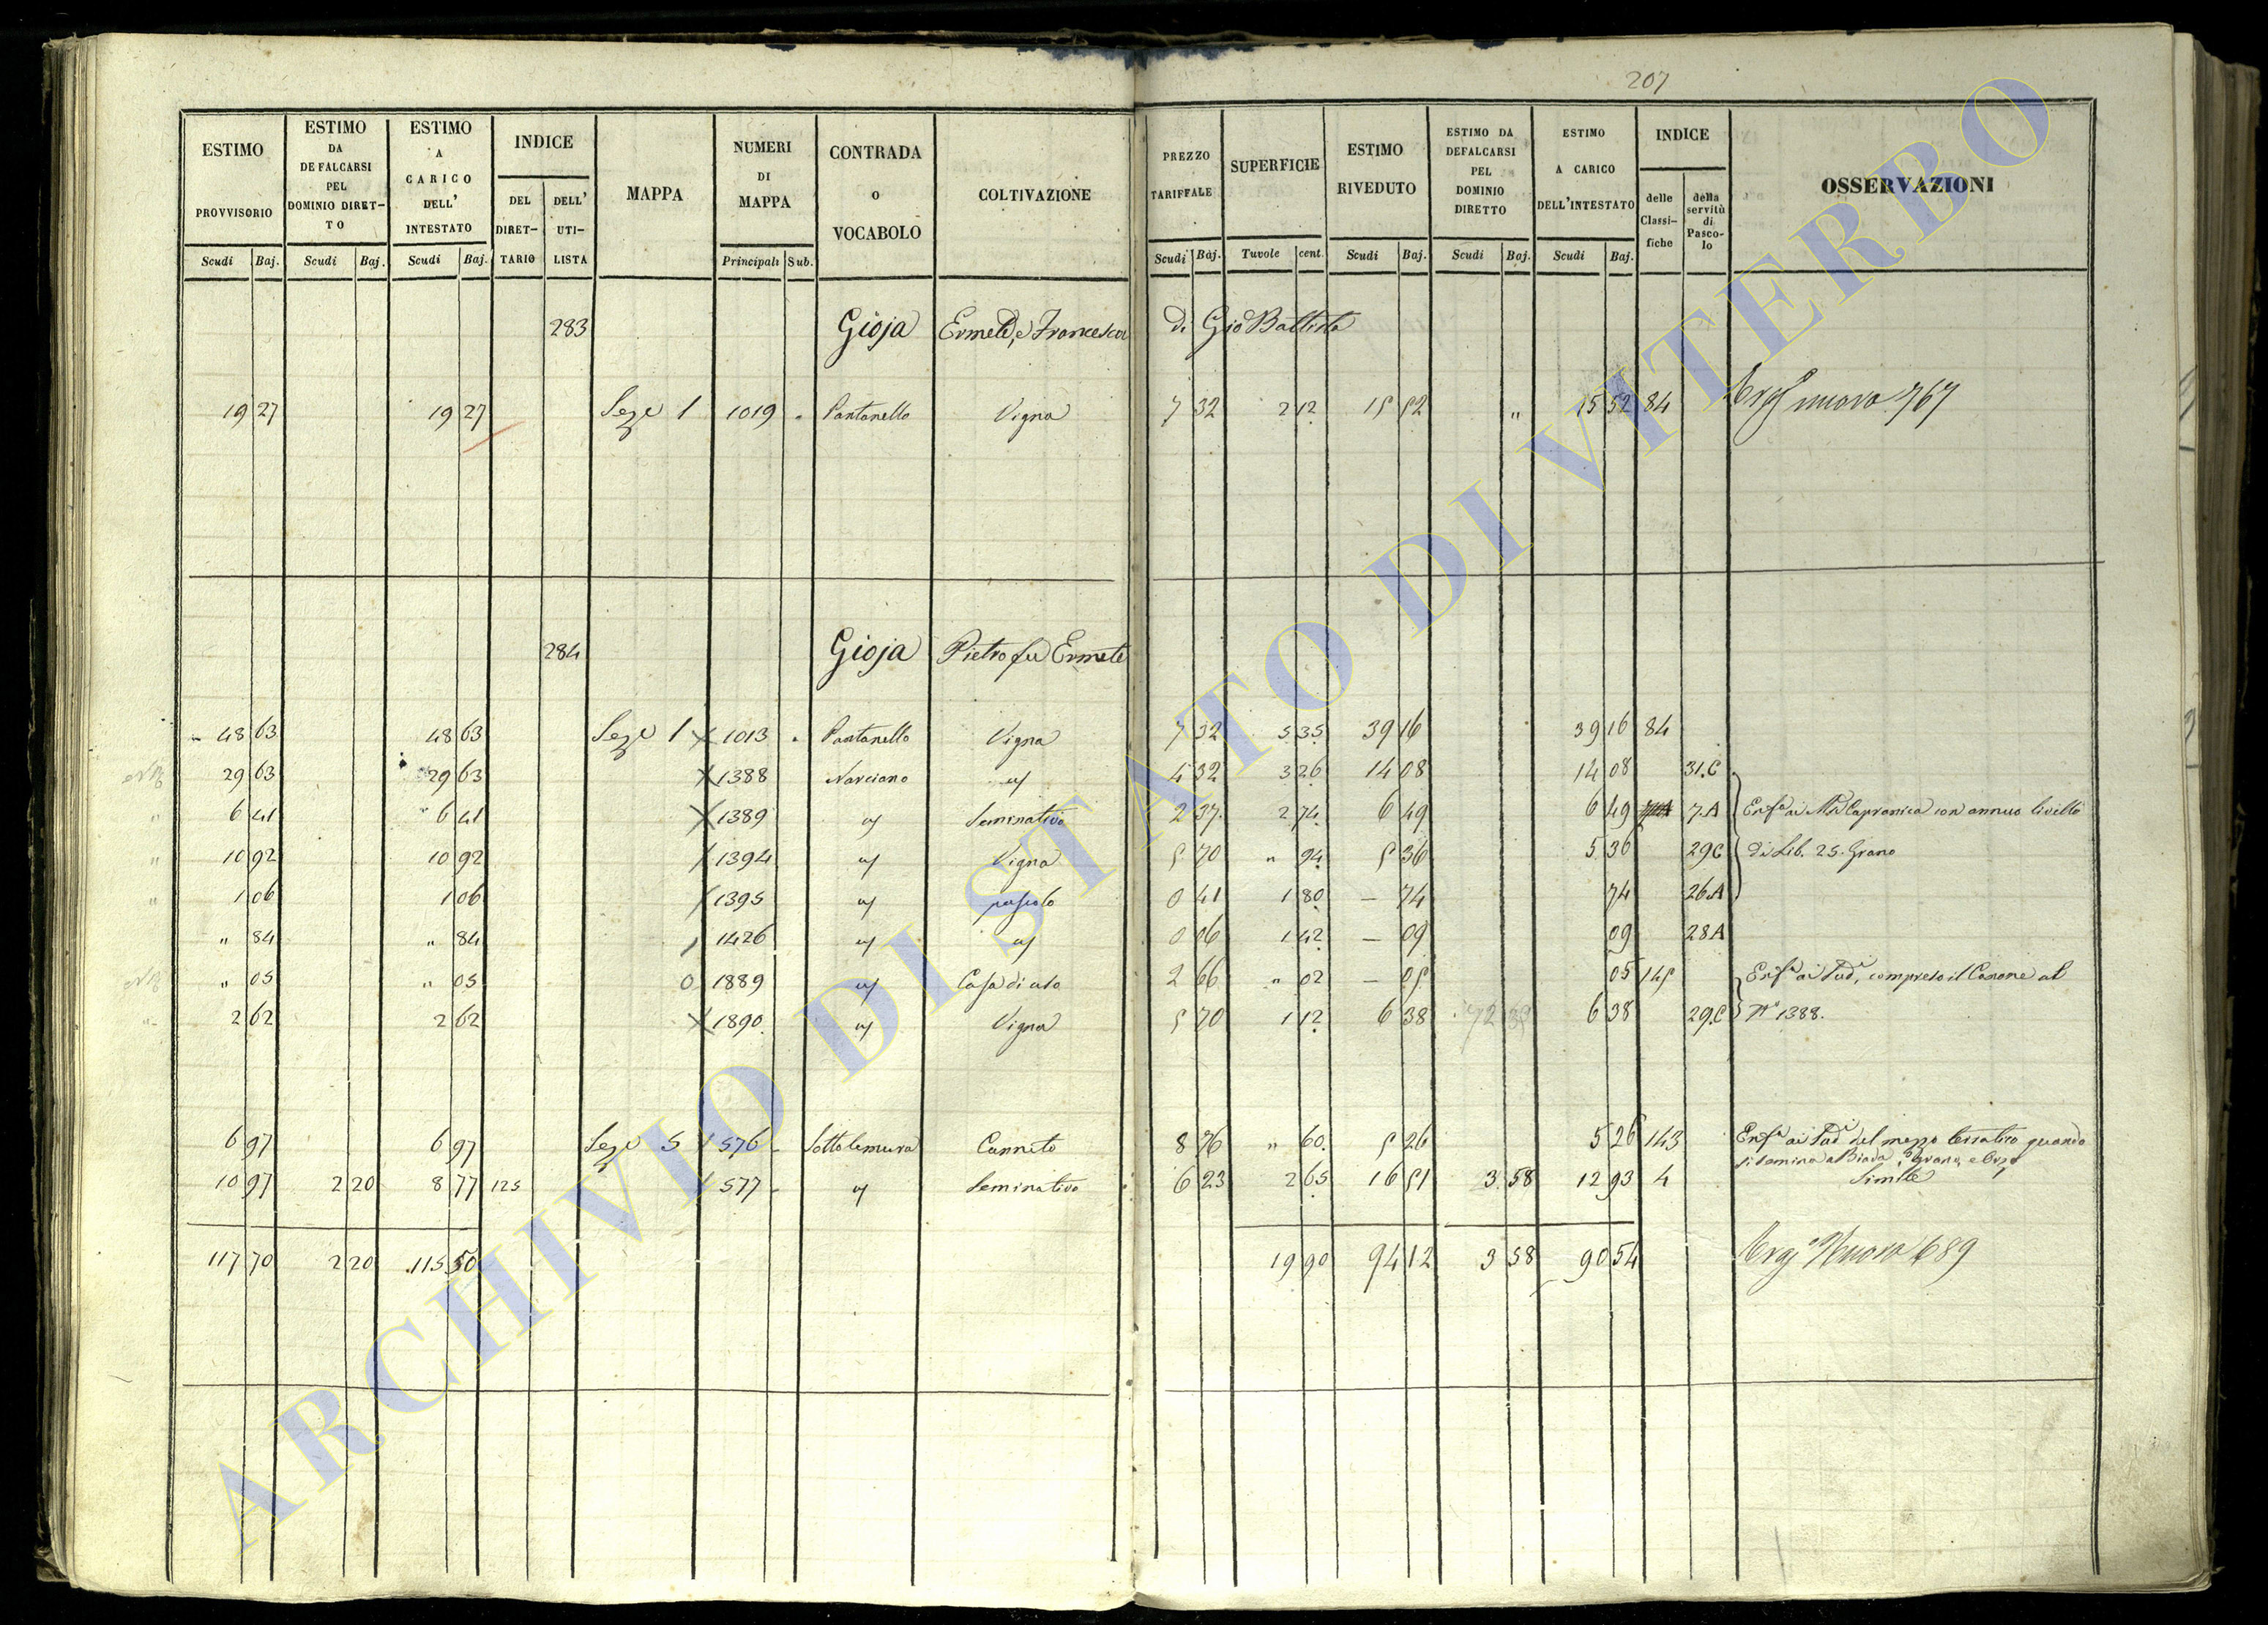 207
ESTIMO PROVVISORIO Scudi Baj. | ESTIMO DA DEFALCARSI PEL DOMINIO DIRET-TO Scudi Baj. | ESTIMO A CARICO DELL' INTESTATO Scudi Baj. | INDICE DEL DIRET-TARIO DELL' UTI-LISTA | MAPPA | NUMERI DI MAPPA Principali Sub. | CONTRADA O VOCABOLO | COLTIVAZIONE | PREZZO TARIFFALE Scudi Baj. | SUPERFICIE Tavole cent. | ESTIMO RIVEDUTO Scudi Baj. | ESTIMO DA DEFALCARSI PEL DOMINIO DIRETTO Scudi Baj. | ESTIMO A CARICO DELL'INTESTATO Scudi Baj. | INDICE delle Classi-fiche della servitù di Pasco-lo | OSSERVAZIONI
283 Gioja Ermete, e Francesca di Gio Battista
19 27 19 27 Seze 1 1019 Pantanello Vigna 7 32 2 12 15 52 " 15 52 84 nuova 767
284 Gioja Pietro fu Ermete
48 63 48 63 Seze 1 X 1013 Pantanello Vigna 7 32 5 35 39 16 39 16 84
NB 29 63 29 63 X 1388 Narciano 4 32 3 26 14 08 14 08 31.C
" 6 41 6 41 X 1389 Seminativo 2 37 2 74 6 49 6 49 7.A Enfa ai Capranica con annuo livello
" 10 92 10 92 / 1394 Vigna 5 70 " 94 5 36 5 36 29C di Lib. 25. Grano
" 1 06 1 06 / 1395 pascolo 0 41 1 80 — 74 74 26.A
" 84 " 84 1426 0 06 1 42 — 09 09 28A
NB " 05 " 05 0 1889 Casa di uso 2 66 " 02 — 05 05 145 Enfa ai Sudi, compreso il Canone al
" 2 62 2 62 X 1890 Vigna 5 70 1 12 6 38 72 6 38 29.C No 1388.
6 97 6 97 Seze 5 / 576 Sottolemura Canneto 8 76 " 60 5 26 5 26 143 Enfa ai Sudi del mezzo terratico quando
si semina a Biada, Grano, e Orzo
10 97 2 20 8 77 125 / 577 Seminativo 6 23 2 65 16 51 3 58 12 93 4 Simile
117 70 2 20 115 50 19 90 94 12 3 58 90 54 Nuova 689
ARCHIVIO DI STATO DI VITERBO